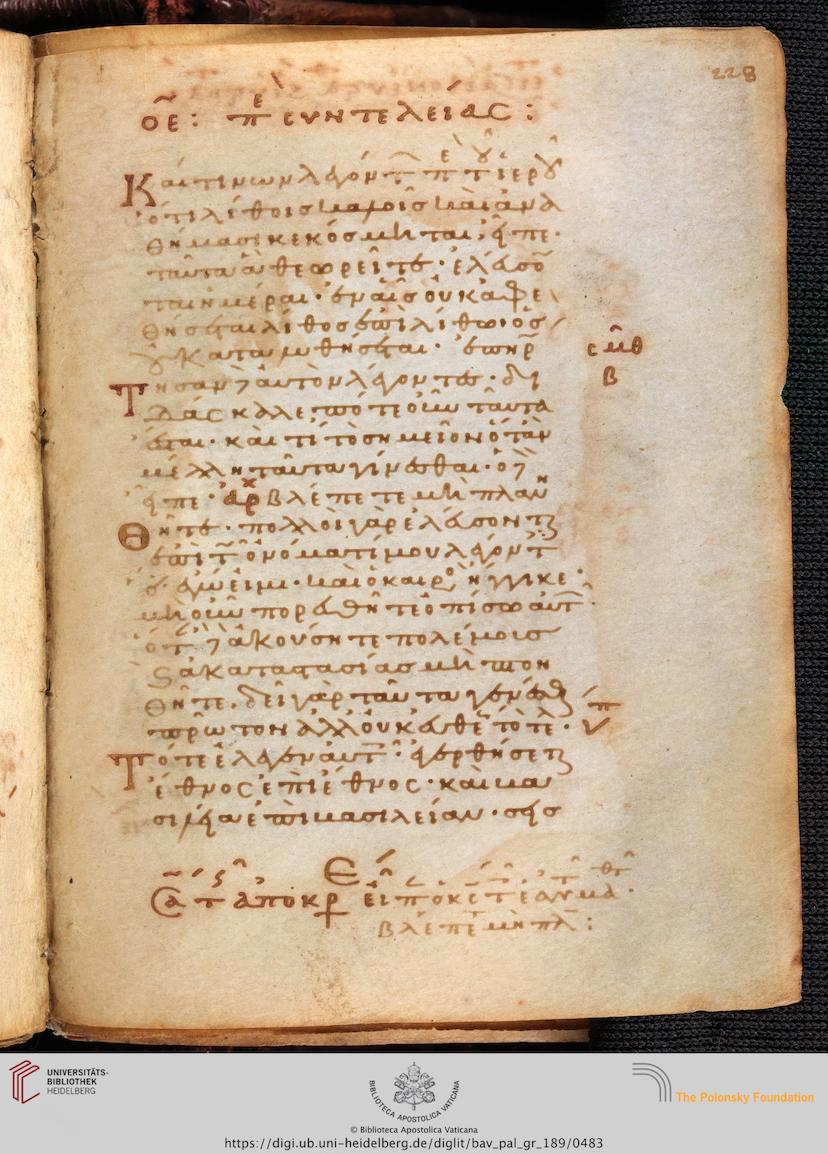 228
οε: π̅ε συντελείας:
Καί τινων λεγόντ π τ ιερ
ὅτι λίθοις καλοῖς καὶ ἀνα
θήμασι κεκόσμηται, εἶπε·
ταῦτα ἃ θεωρεῖτε· ἐλεύσο
ται ἡμέραι· ἐν αἷς οὐκ ἀφε
θήσεται λίθος ἐπὶ λίθωι ὃς
οὐ καταλυθήσεται· ἐπηρ
Τησαν δὲ αὐτὸν λέγοντες· δι
δάσκαλε πότε οὖν ταῦτα
ἔσται· καὶ τί τὸ σημεῖον ὅταν
μέλλη ταῦτα γίνεσθαι· ὁ δὲ
εἶπε· βλέπετε μὴ πλαν
Θῆτε· πολλοὶ γὰρ ἐλεύσονται
ἐπὶ τ ὀνόματί μου λέγοντ
ὅ· ἐγώ εἰμι· καὶ ὁ καιρὸ ἤγγικε·
μὴ οὖν πορευθῆτε ὀπίσω αὐτ·
ὅτ δὲ ἀκούσητε πολέμους
καὶ ἀκαταστασίας μὴ πτοη
θῆτε. δεῖ γὰρ ταῦτα γενέσθαι
πρῶτον ἀλλ' οὐκ εὐθέ τὸ τέλ·
Τότε ἔλεγεν αὐτ· ἐγερθήσεται
ἔθνος ἐπὶ ἔθνος· καὶ βα
σιλεία ἐπὶ βασιλείαν· σεισ
βλέπε μὴ πλ:
UNIVERSITÄTS-
BIBLIOTHEK
HEIDELBERG
BIBLIOTECA APOSTOLICA VATICANA
The Polonsky Foundation
© Biblioteca Apostolica Vaticana
https://digi.ub.uni-heidelberg.de/diglit/bav_pal_gr_189/0483